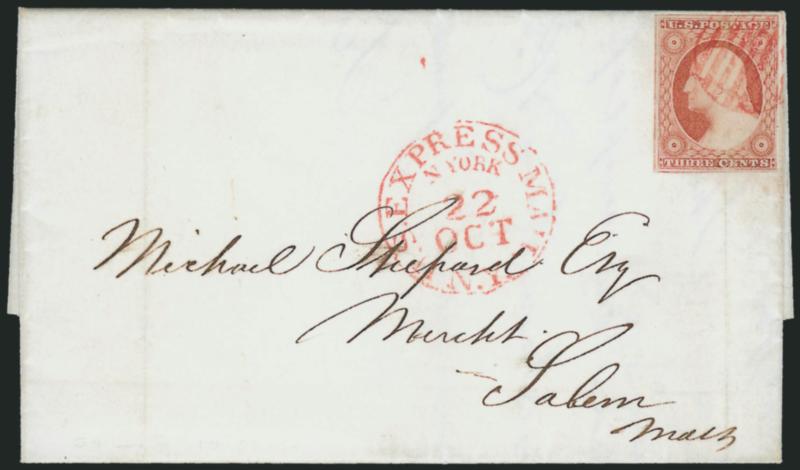 U.S. POSTAGE
THREE CENTS
S. EXPRESS MAIL
N YORK
22
OCT
N.Y.
Michael Shepard Esq
Mercht.
Salem
Mass